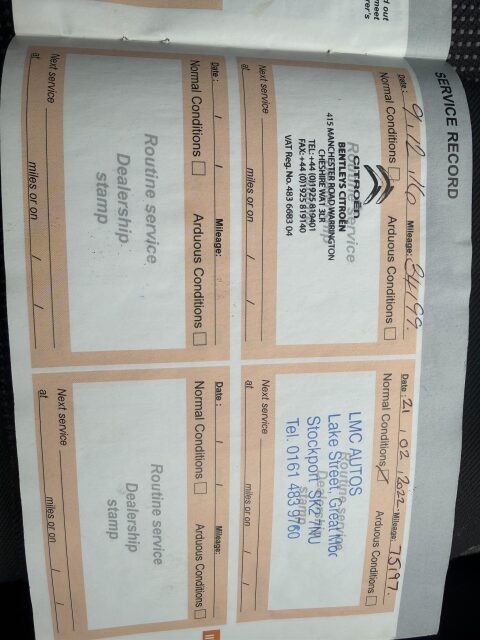 SERVICE RECORD
Date: 9/12/16 Mileage: 34199.
Normal Conditions Arduous Conditions
CITROËN
BENTLEYS CITROËN
415 MANCHESTER ROAD, WARRINGTON
CHESHIRE WA1 3LR
TEL: +44 (0)1925 819401
FAX: +44 (0)1925 819140
VAT Reg. No. 483 6683 04
Routine service
Next service
at miles or on / /
Date: 21/02/2022 Mileage: 75197.
Normal Conditions Arduous Conditions
LMC AUTOS
Lake Street, Great Moor
Stockport SK2 7NU
Tel. 0161 483 9760
Routine service
Dealership
stamp
Next service
at miles or on / /
Date: / / Mileage:
Normal Conditions Arduous Conditions
Routine service
Dealership
stamp
Next service
at miles or on / /
Date: / / Mileage:
Normal Conditions Arduous Conditions
Routine service
Dealership
stamp
Next service
at miles or on / /